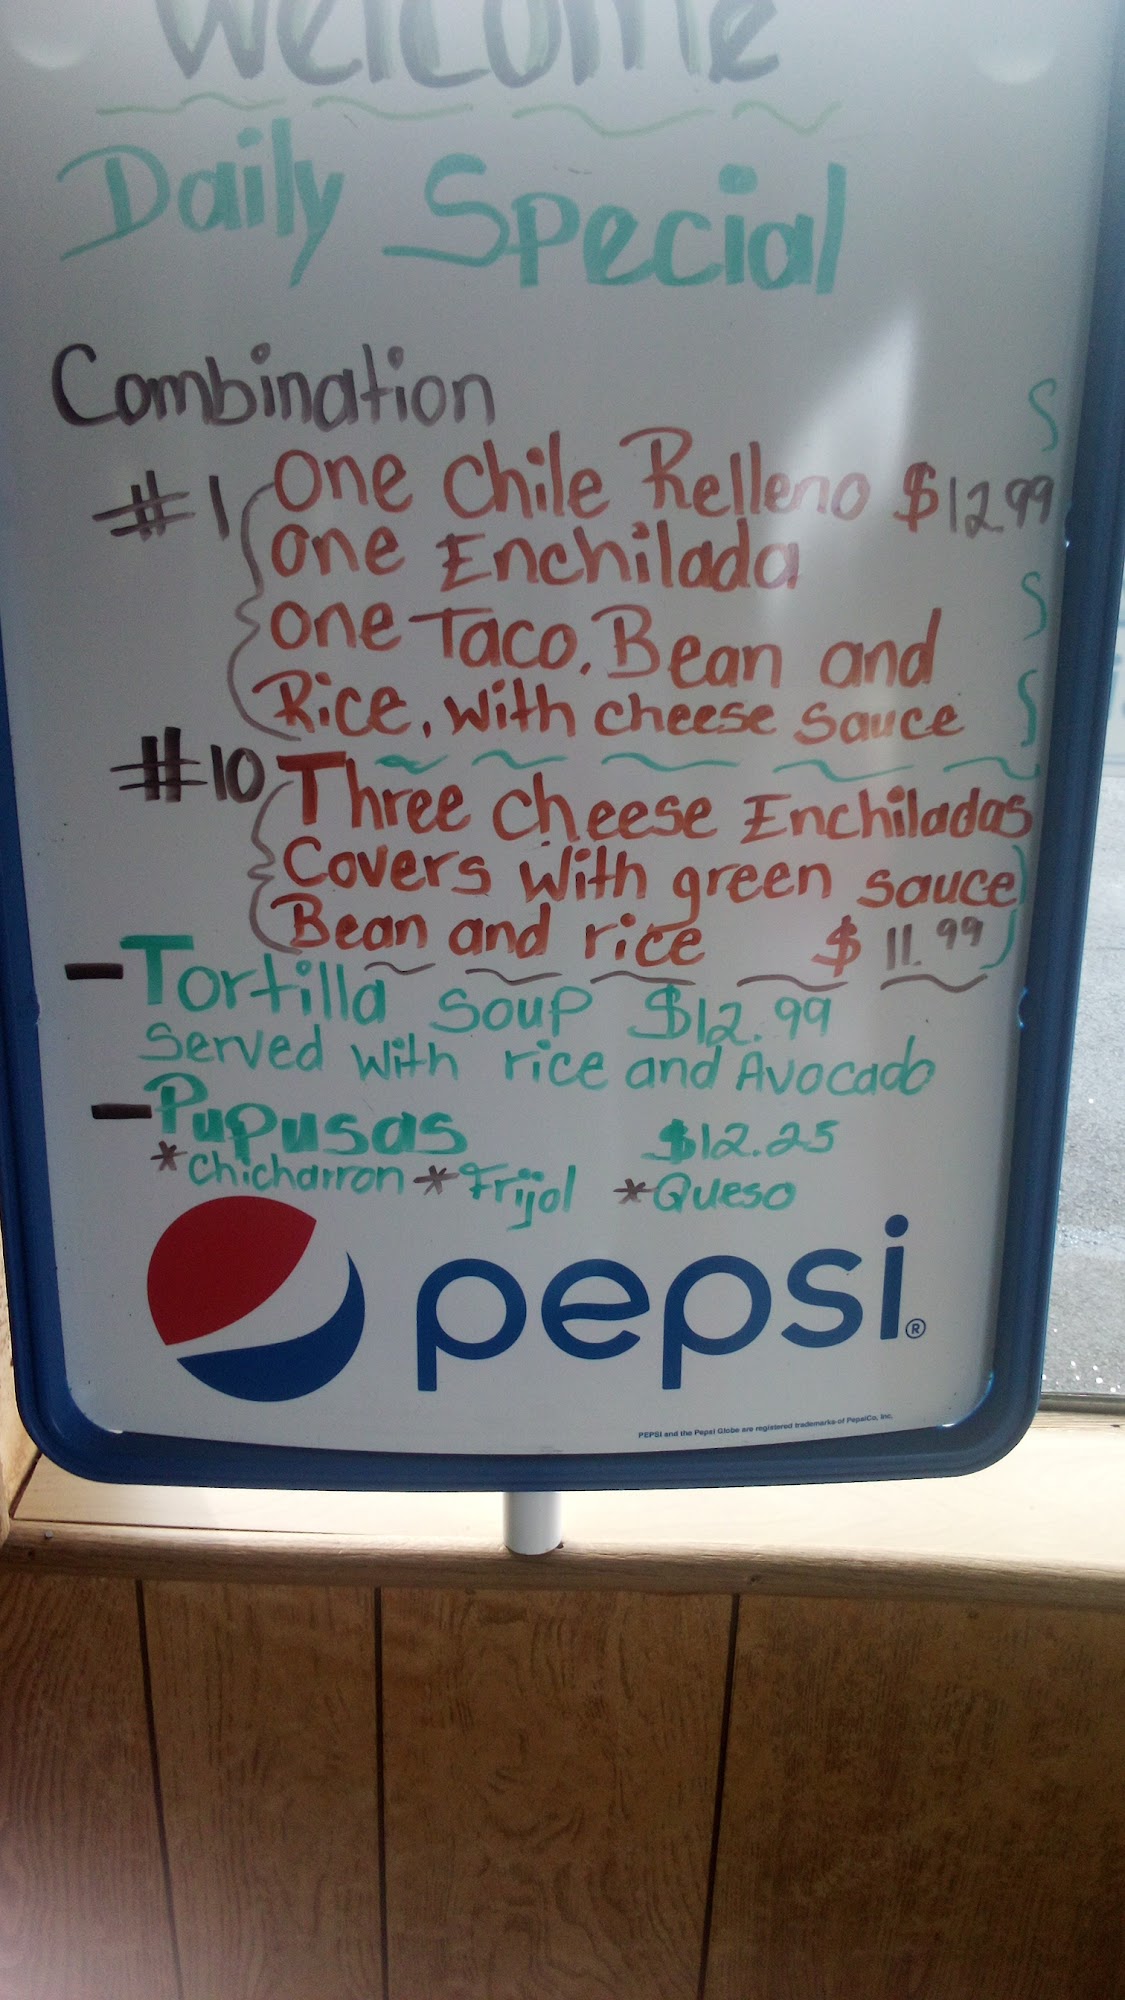 Welcome
Daily Special
Combination
#1 One Chile Relleno $12.99
One Enchilada
One Taco. Bean and
Rice, with cheese sauce
#10 Three cheese Enchiladas
Covers with green sauce
Bean and rice $11.99
- Tortilla soup $12.99
served with rice and Avocado
- Pupusas $12.25
*Chicharron *Frijol *Queso
pepsi®
PEPSI and the Pepsi Globe are registered trademarks of PepsiCo, Inc.